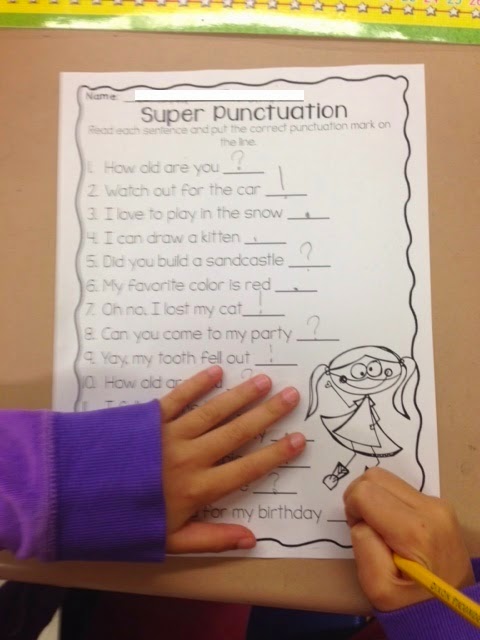 Name:
Super Punctuation
Read each sentence and put the correct punctuation mark on
the line.
1. How old are you ?
2. Watch out for the car !
3. I love to play in the snow .
4. I can draw a kitten .
5. Did you build a sandcastle ?
6. My favorite color is red .
7. Oh no, I lost my cat !
8. Can you come to my party ?
9. Yay, my tooth fell out !
0. How old ?
?
for my birthday